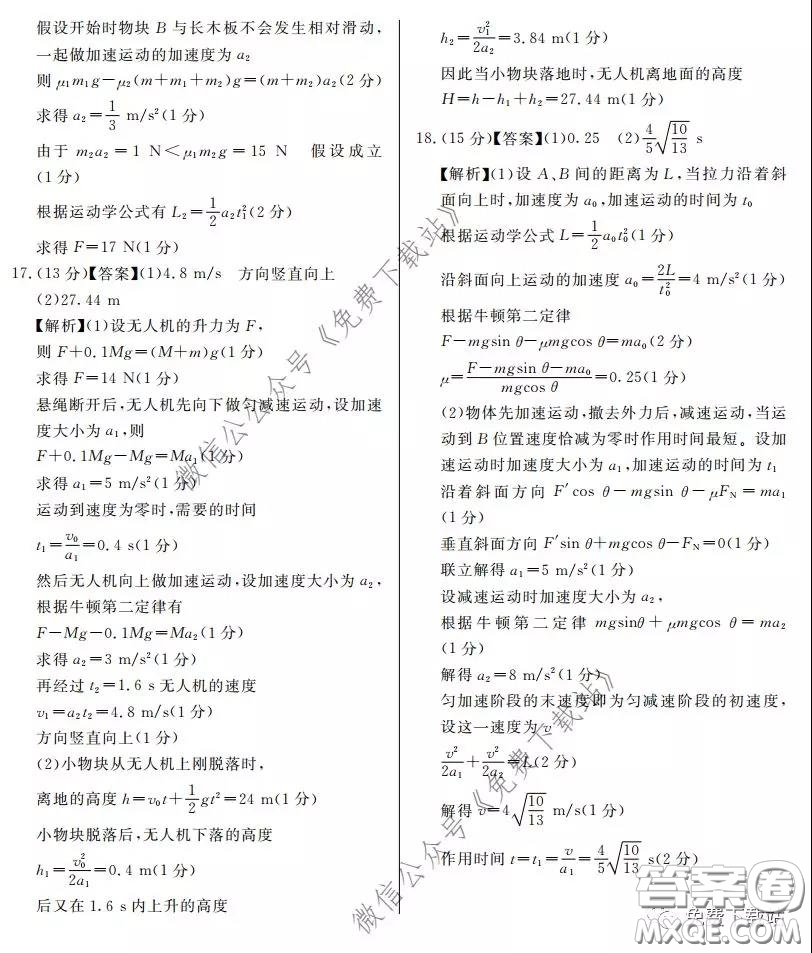 假设开始时物块 B 与长木板不会发生相对滑动，
一起做加速运动的加速度为 a₂
则 μ₁m₁g－μ₂(m＋m₁＋m₂)g＝(m＋m₂)a₂(2 分)
求得 a₂＝1/3 m/s²(1 分)
由于 m₂a₂＝1 N＜μ₁m₂g＝15 N　假设成立
(1 分)
根据运动学公式有 L₂＝1/2 a₂t₁²(2 分)
求得 F＝17 N(1 分)
17.(13 分)【答案】(1)4.8 m/s　方向竖直向上
(2)27.44 m
【解析】(1)设无人机的升力为 F，
则 F＋0.1Mg＝(M＋m)g(1 分)
求得 F＝14 N(1 分)
悬绳断开后，无人机先向下做匀减速运动，设加速
度大小为 a₁，则
F＋0.1Mg－Mg＝Ma₁(1 分)
求得 a₁＝5 m/s²(1 分)
运动到速度为零时，需要的时间
t₁＝v₀/a₁＝0.4 s(1 分)
然后无人机向上做加速运动，设加速度大小为 a₂，
根据牛顿第二定律有
F－Mg－0.1Mg＝Ma₂(1 分)
求得 a₂＝3 m/s²(1 分)
再经过 t₂＝1.6 s 无人机的速度
v₁＝a₂t₂＝4.8 m/s(1 分)
方向竖直向上(1 分)
(2)小物块从无人机上刚脱落时，
离地的高度 h＝v₀t＋1/2 gt²＝24 m(1 分)
小物块脱落后，无人机下落的高度
h₁＝v₀²/2a₁＝0.4 m(1 分)
后又在 1.6 s 内上升的高度
h₂＝v₁²/2a₂＝3.84 m(1 分)
因此当小物块落地时，无人机离地面的高度
H＝h－h₁＋h₂＝27.44 m(1 分)
18.(15 分)【答案】(1)0.25　(2)4/5 √(10/13) s
【解析】(1)设 A、B 间的距离为 L，当拉力沿着斜
面向上时，加速度为 a₀，加速运动的时间为 t₀
根据运动学公式 L＝1/2 a₀t₀²(1 分)
沿斜面向上运动的加速度 a₀＝2L/t₀²＝4 m/s²(1 分)
根据牛顿第二定律
F－mgsin θ－μmgcos θ＝ma₀(2 分)
μ＝(F－mgsin θ－ma₀)/(mgcos θ)＝0.25(1 分)
(2)物体先加速运动，撤去外力后，减速运动，当运
动到 B 位置速度恰减为零时作用时间最短。设加
速运动时加速度大小为 a₁，加速运动的时间为 t₁
沿着斜面方向 F′cos θ－mgsin θ－μF_N＝ma₁
(1 分)
垂直斜面方向 F′sin θ＋mgcos θ－F_N＝0(1 分)
联立解得 a₁＝5 m/s²(1 分)
设减速运动时加速度大小为 a₂，
根据牛顿第二定律 mgsinθ＋μmgcos θ＝ma₂
(1 分)
解得 a₂＝8 m/s²(1 分)
匀加速阶段的末速度即为匀减速阶段的初速度，
设这一速度为 v
v²/2a₁＋v²/2a₂＝L(2 分)
解得 v＝4√(10/13) m/s(1 分)
作用时间 t＝t₁＝v/a₁＝4/5 √(10/13) s(2 分)
微信公众号《免费下载站》
微信公众号《免费下载站》
答案卷
免费下载站
MXQE.COM